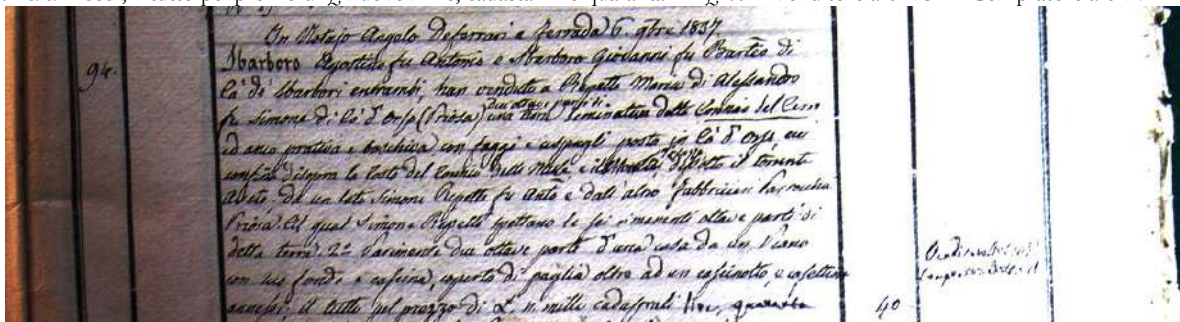 In Notajo Angelo Deferrari a Ferrada 6. 9bre 1837.
94. Sbarboro Agostino fu Antonio e Sbarboro Giovanni fu Bartēo di
Cà de Sbarbori entrambi, han venduto a Repetto Maria di Alessandro
fu Simone di Cà d'Orso (Priosa) due ottave parti di una terra seminativa detta
ed anco prativa e boschiva con faggi e cespugli posta in Cà d'Orso, cui
confina disopra la Costa del disotto il torrente
Aveto da un lato Simone Repetto fu Anto e dall'altro Fabbriceria Parrocchia
Priosa al qual Simone Repetto spettano le sei rimanenti ottave parti di
detta terra. 2° Parimente due ottave parti d'una casa da un Piano
con suo fondo e cascina, coperto di paglia oltre ad un cascinotto, e
annessi, il tutto pel prezzo di n. mille cadastrali lire, quaranta
40